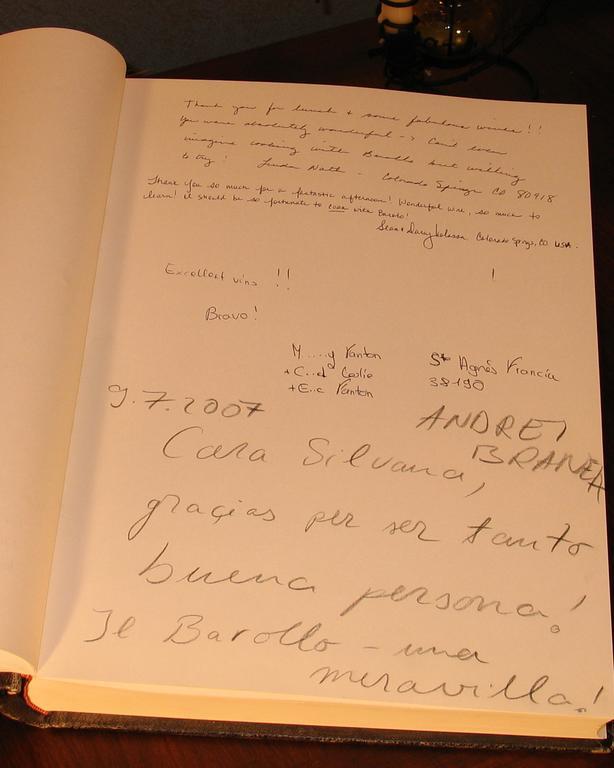 Thank you for lunch + some fabulous wines!!
You were absolutely wonderful -> Can't even
imagine cooking with Barollo but willing
to try! Linda Nath - Colorado Springs CO 80918
Thank you so much for a fantastic afternoon! Wonderful wine, so much to
learn! I should be so fortunate to cook with Barolo!
Sean + Colorado Springs, CO USA.
Excellent vins !!
!
Bravo!
M.....y Vanton
+C...d
+E...c Vanton
Ste Agnés Francia
38190
9.7.2007
ANDREJ
BRANEA
Cara Silvana,
graçias per ser tanto
buena persona!
Il Barollo - una
meravilla!